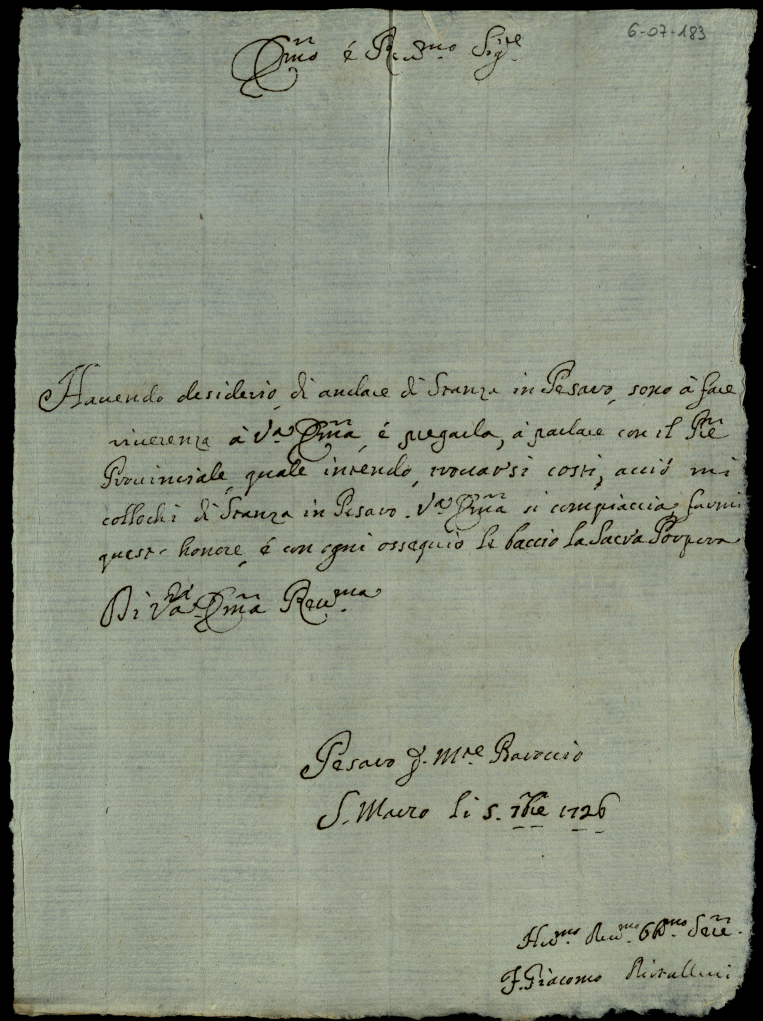 6-07-183
Emo é Revmo Sigre
Havendo desiderio, di andare di Stanza in Pesaro, sono à fare
riverenza à Va Ema, é pregarla, à parlare con il Pre
Provinciale, quale intendo, trovarsi costi, acciò mi
collochi di Stanza in Pesaro. Va Ema si compiaccia, farmi
questo honore, é con ogni ossequio le baccio la Sacra Porpora
Di Va Ema Revma
Pesaro
S. Marco li 5. 7bre 1726
Humo Devmo Obmo Sre
F. Giacomo